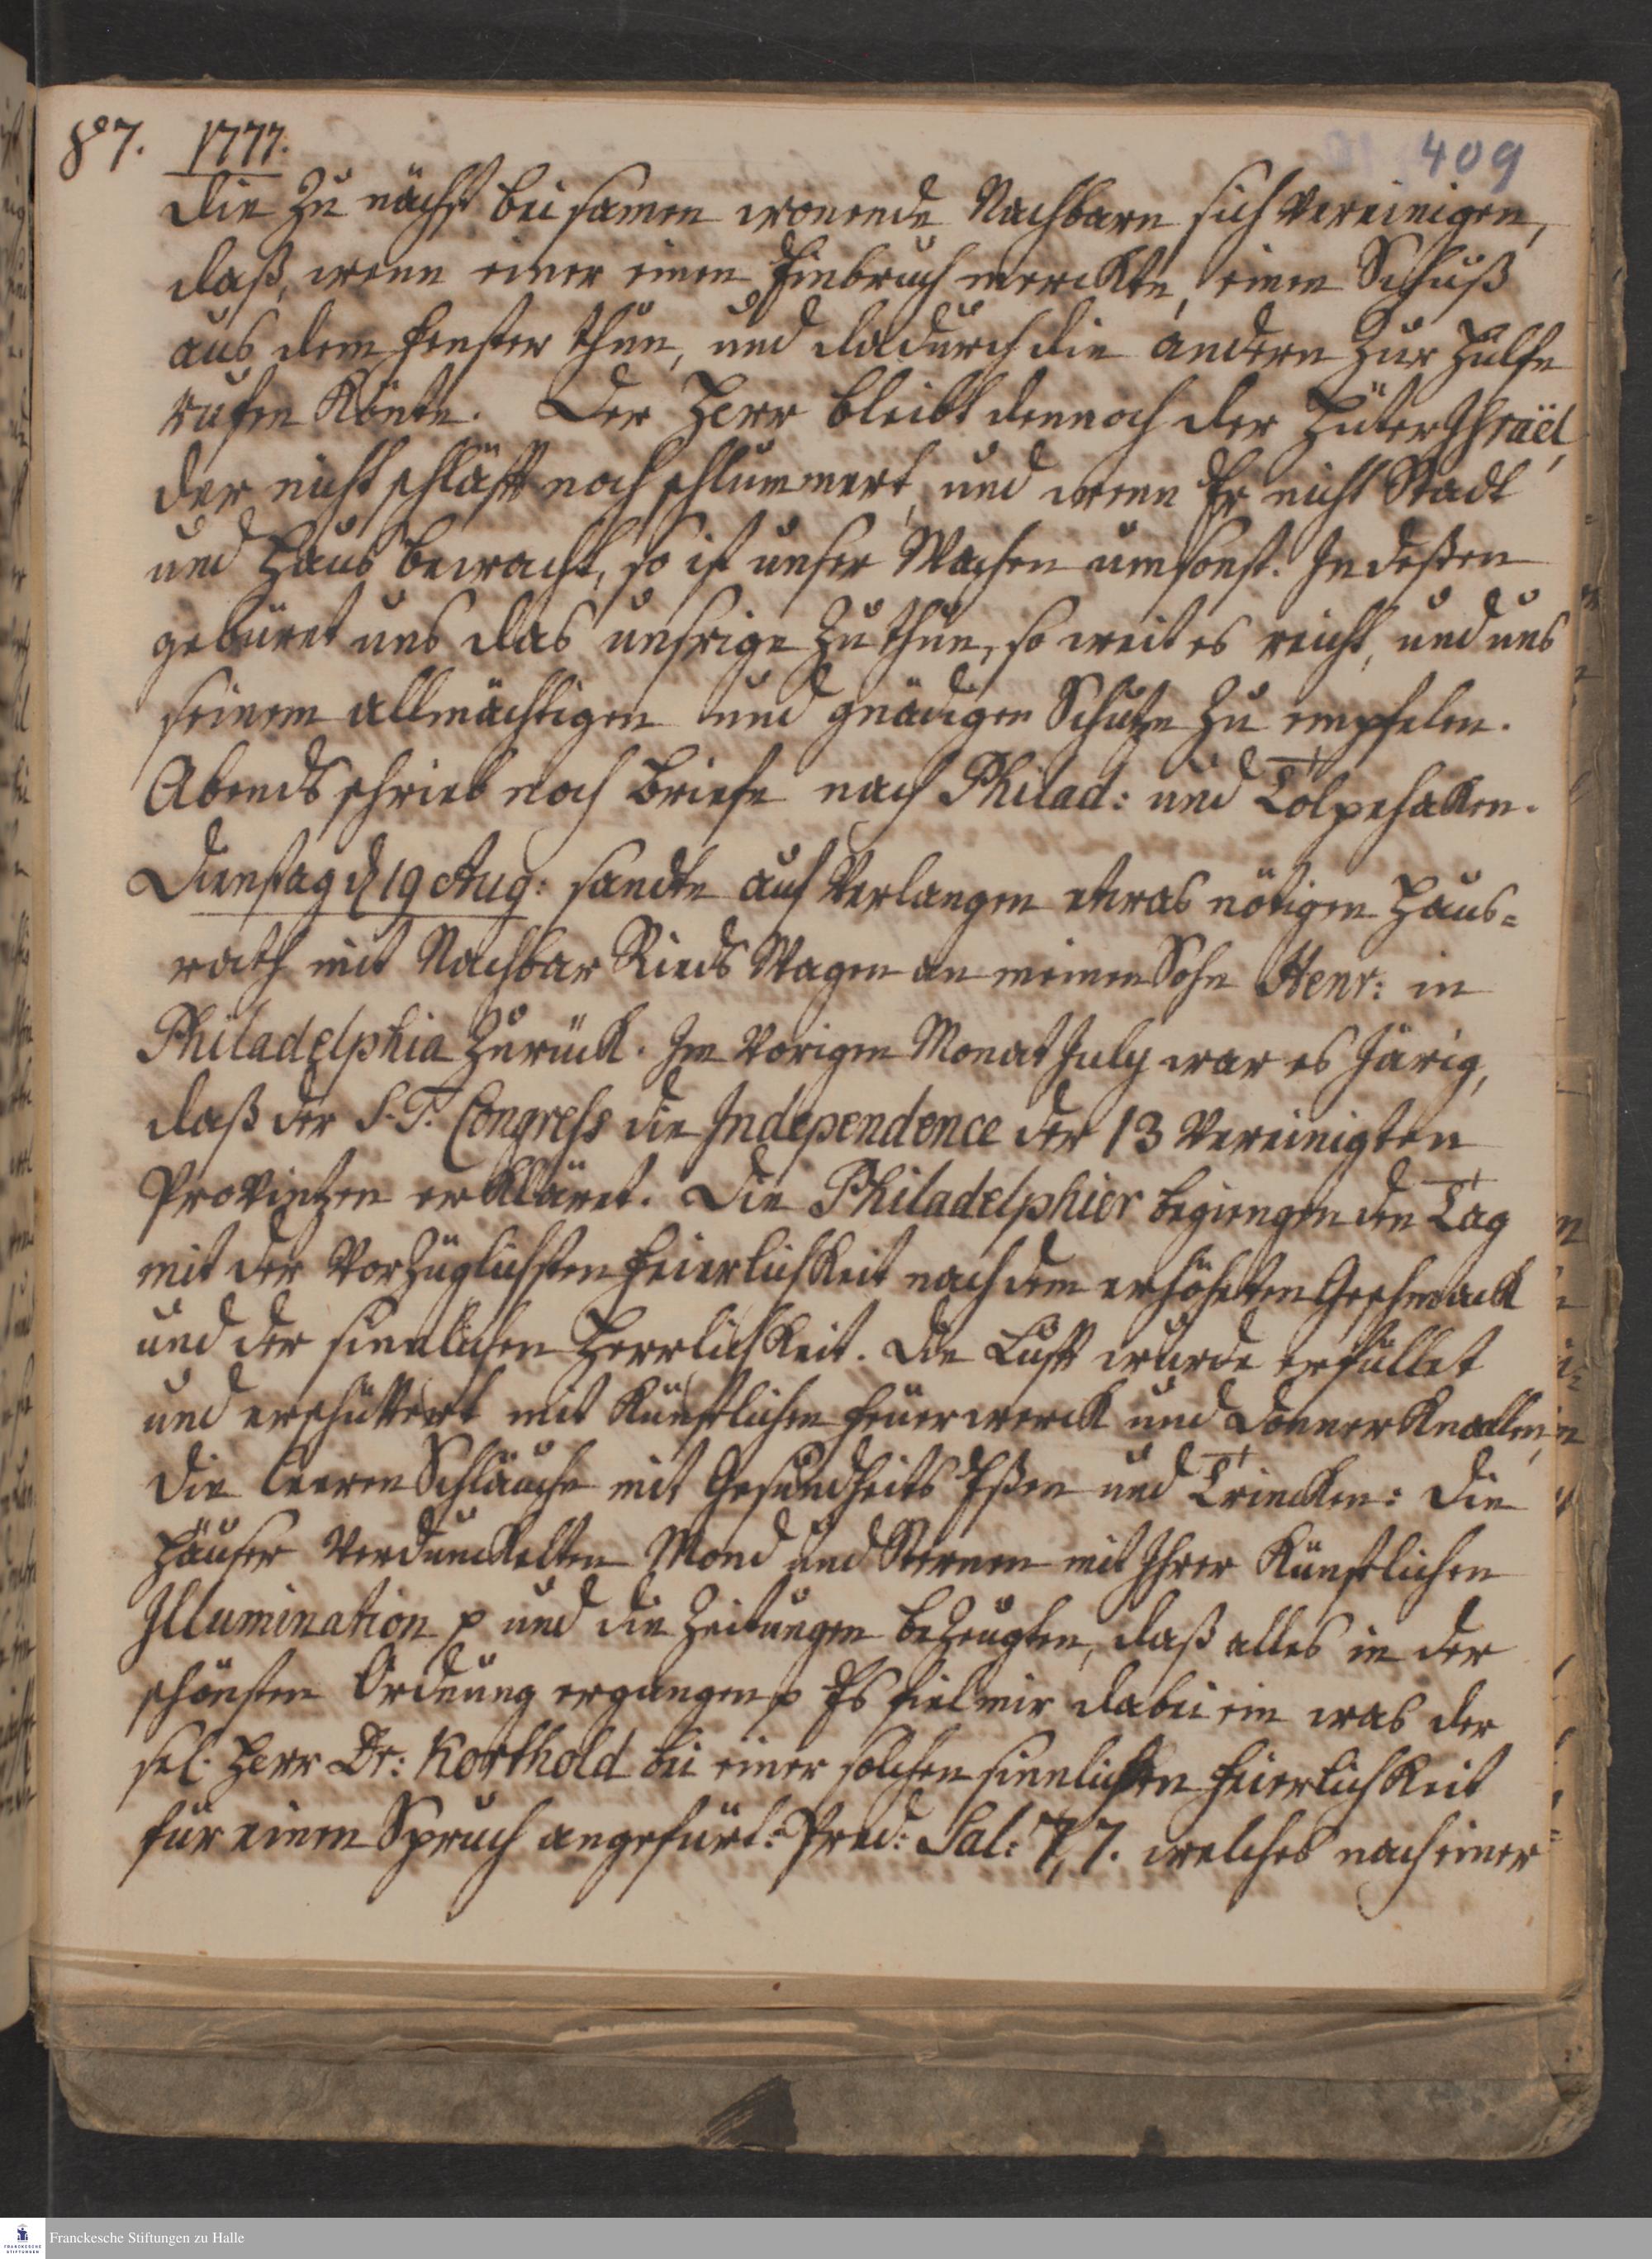 87. 1777. 409
die zu nächst beisamen wonende Nachbarn sich vereinigen,
daß, wenn einer einen Einbruch merckte, einen Schuß
aus dem Fenster thun, und dadurch die andern zur Hülfe
rufen könte. Der Herr bleibt dennoch der Hüter Jsraël,
der nicht schläft noch schlummert, und wenn Er nicht Stadt
und Haus bewacht, so ist unser Wachen umsonst. Jndeßen
gebüret uns das unsrige zu thun, so weit es reicht, und uns
seinem allmächtigen und gnädigen Schutze zu empfelen.
Abends schrieb noch Briefe nach Philad: und Tolpehaken.
Dienstag d 19 Aug: sandte auf Verlangen etwas nötigen Haus=
rath mit Nachbar Rieds Wagen an meinen Sohn Henr: in
Philadelphia zurück. Jm vorigen Monat July war es järig,
daß der S. T. Congress die Jndependence der 13 vereinigten
Provintzen erkläret. Die Philadelphier begiengen den Tag
mit der vorzüglichsten Feierlichkeit nach dem erhöheten Geschmack
und der sinnlichen Herrlichkeit. Die Luft wurde erfüllet
und erschüttert mit künstlichen Feuerwerck und Donner Knallen,
die leeren Schläuche mit Gesundheits Eßen und Trincken: die
Häuser verdunckelten Mond und Sternen mit Jhrer künstlichen
Jllumination p und die Zeitungen bezeugten, daß alles in der
schönsten Ordnung ergangen p Es fiel mir dabei ein was der
sel. Herr Dr: Korthold bei einer solchen sinnlichen Feierlichkeit
für einen Spruch angefürt: Pred: Sal: 7, 7. welches nach einer
Franckesche Stiftungen zu Halle